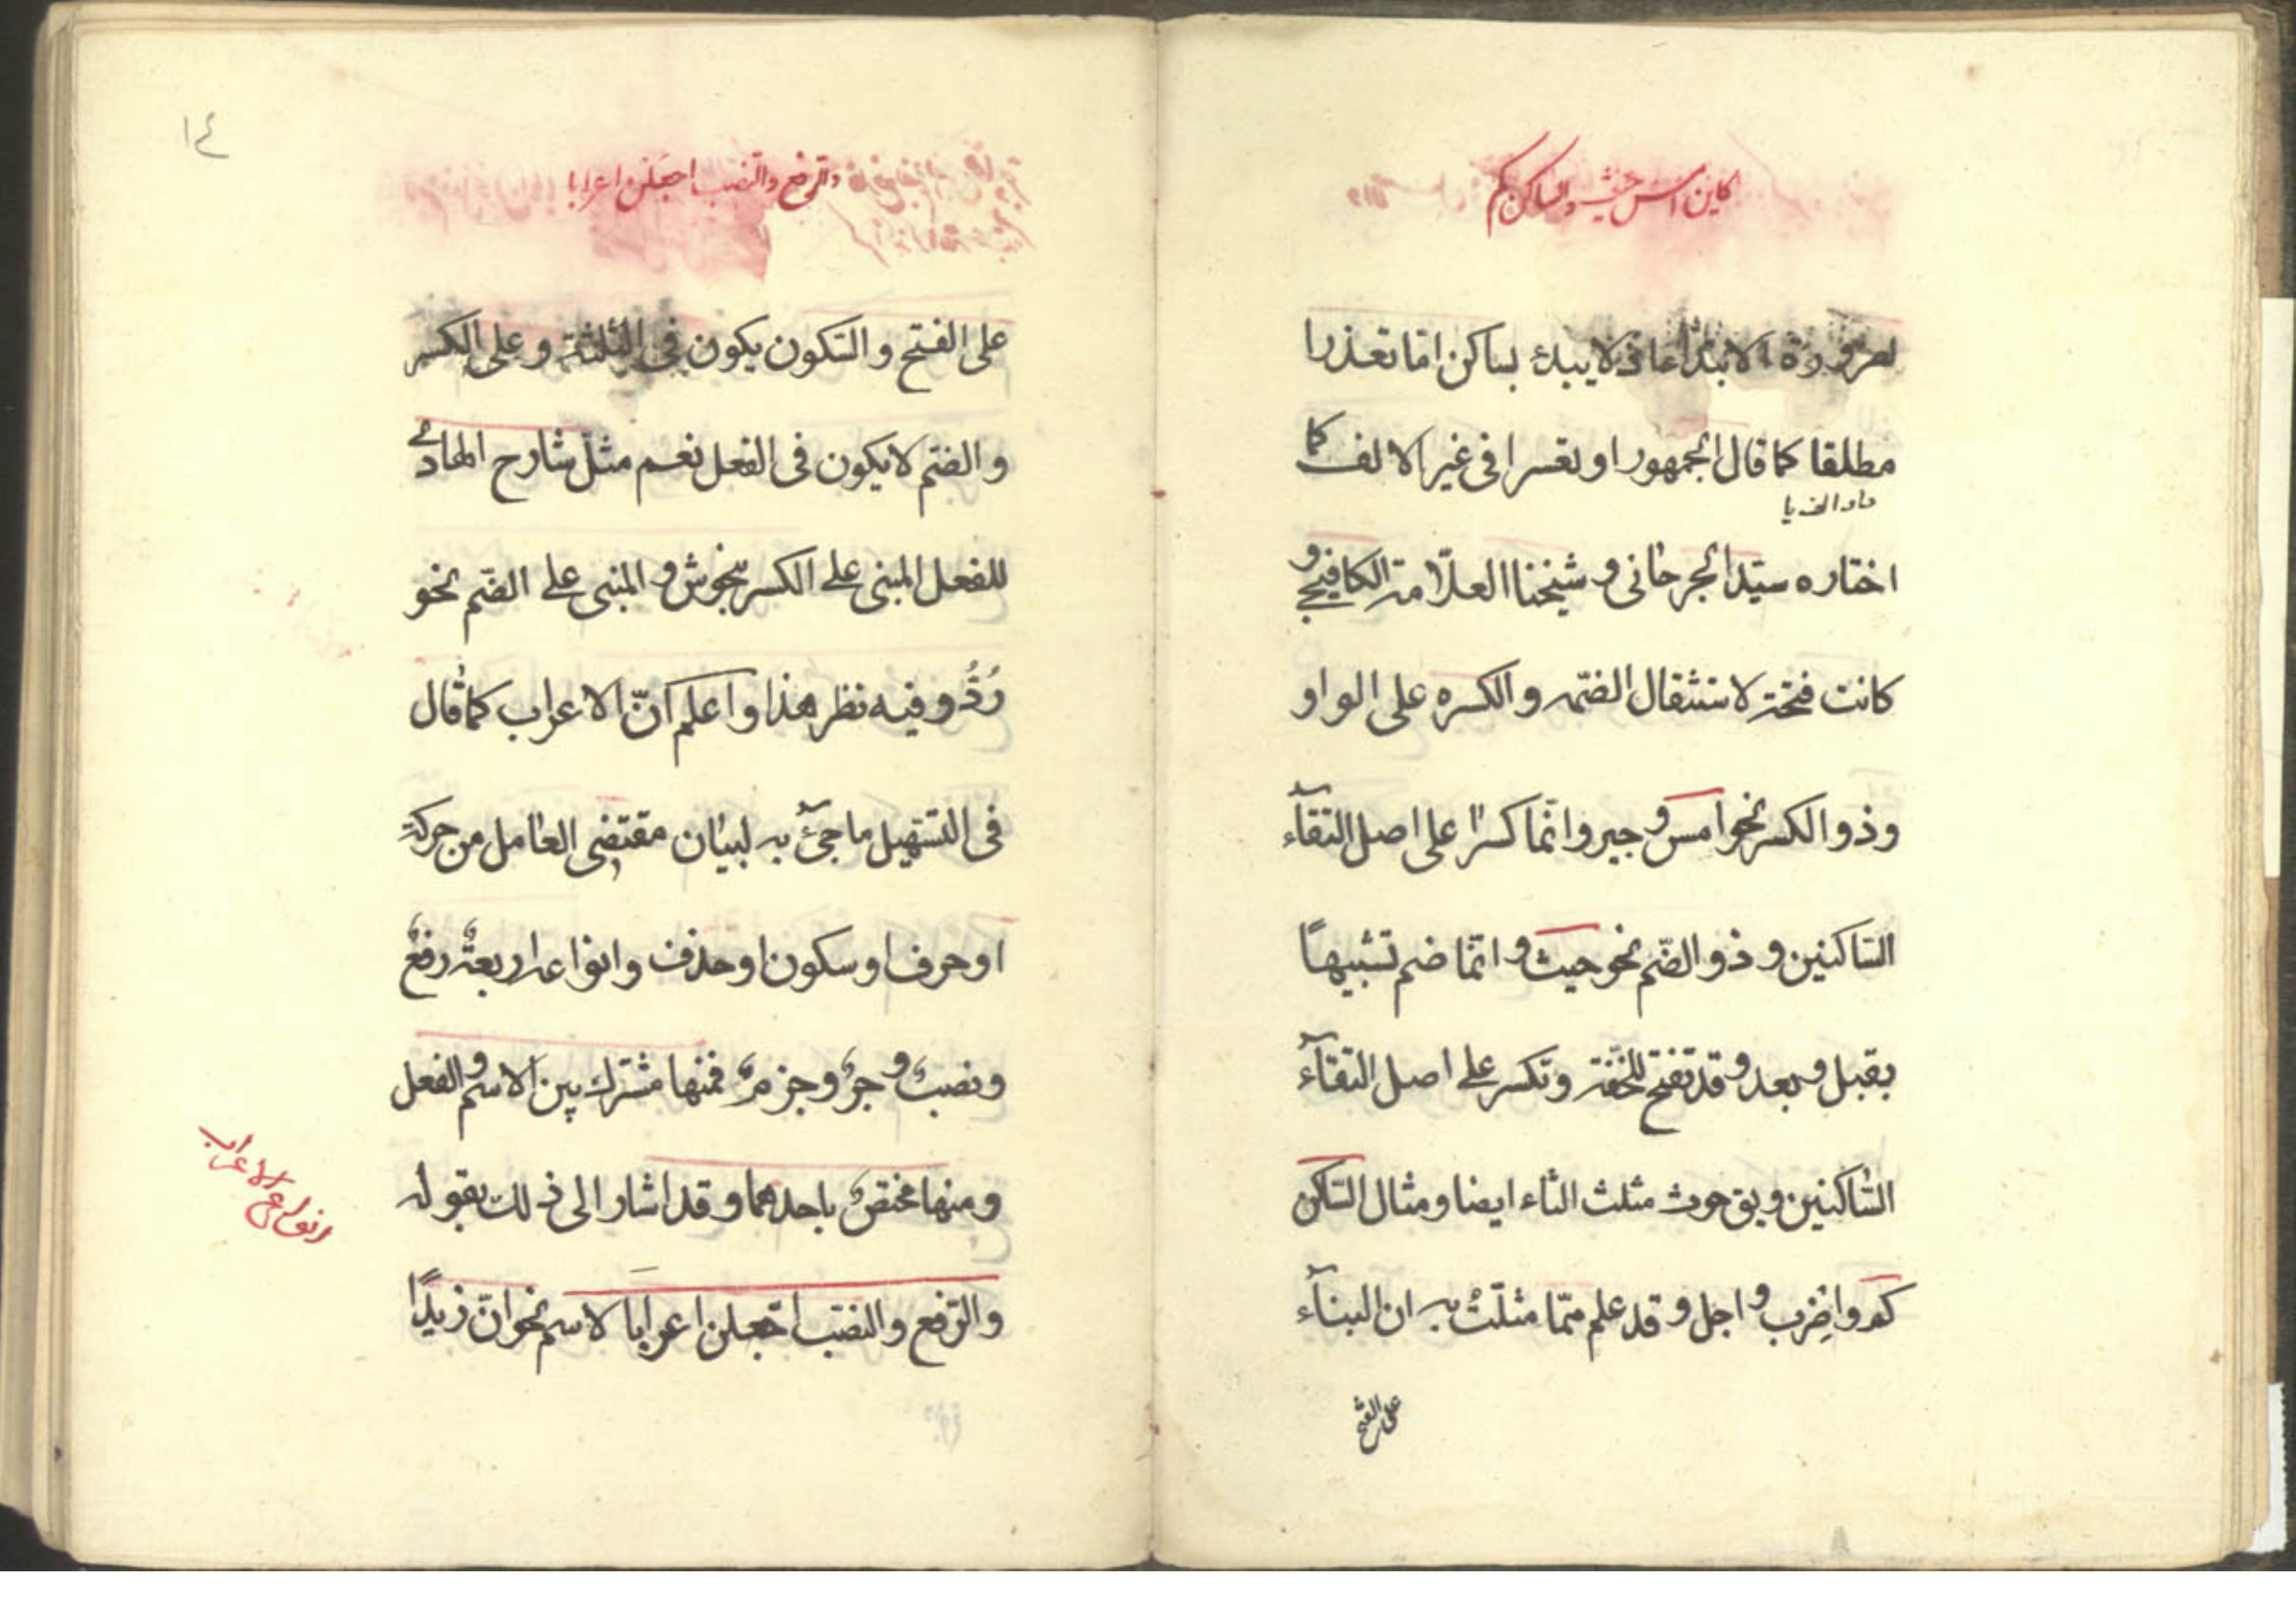 كاين امس حيث والساكن كم
لضرورة الابتداء اذ لا يبدئ بساكن امّا تعذرا
مطلقا كما قال الجمهور او تعسرا فى غير الالف كما
اختاره سيّد الجرجانى و شيخنا العلّامة الكافيجى و
كانت فتحة لاستثقال الضمّه والكسره على الواو
وذو الكسر نحو امس و جير وانّما كسرا على اصل التقآء
السّاكنين و ذو الضّم نحو حيث و انّما ضم تشبيهاً
بقبل و بعد و قد تفتح للخفّة وتكسر على اصل التقآء
السّاكنين ويق حوث مثلث الثاء ايضا ومثال السّاكن
كم واضرب و اجل و قد علم ممّا مثلّتُ به ان البنآء
على الفتح
١٤
والرفع والنصب اجعلن اعرابا
على الفتح و السّكون يكون فى الثلثة و على الكسر
و الضمّ لا يكون فى الفعل نعم مثل شارح الهادى
للفعل المبنى على الكسر بنحو ش و المبنى على الضّم نحو
رُدُّ و فيه نظر هذا واعلم انّ الاعراب كما قال
فى التسّهيل ما جئ به لبيان مقتضى العامل من حركة
او حرف او سكون او حذف وانواعه اربعةٌ رفعٌ
ونصبٌ و جرٌ وجزمٌ فمنها مشترك بين الاسم و الفعل
ومنها مختصٌ باحدهما و قد اشار الى ذلك بقوله
انواع الاعراب
والرّفع والنصّب اجعلن اعرابا لاسم نحو انّ زيدًا